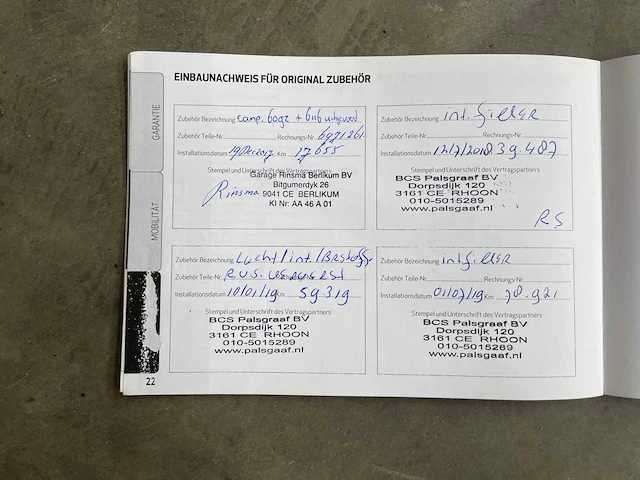 EINBAUNACHWEIS FÜR ORIGINAL ZUBEHÖR
GARANTIE
MOBILITÄT
Zubehör Bezeichnung camp. 60gz + 6n6 uitgevoerd
Zubehör Teile-Nr. Rechnungs-Nr. 6971261
Installationsdatum 19 Dec 2017 Km 17655
Stempel und Unterschrift des Vertragspartners
Garage Rinsma Berlikum BV
Bitgumerdyk 26
Rinsma 9041 CE BERLIKUM
KI Nr: AA 46 A 01
Zubehör Bezeichnung int. filler
Zubehör Teile-Nr. Rechnungs-Nr.
Installationsdatum 12/7/2018 39.487
Stempel und Unterschrift des Vertragspartners
BCS Palsgraaf BV
Dorpsdijk 120
3161 CE RHOON
010-5015289
www.palsgaaf.nl
RS
Zubehör Bezeichnung Lucht/int./Brstoff
Zubehör Teile-Nr. R.V.S. ververst
Installationsdatum 10/01/19 Km 59319
Stempel und Unterschrift des Vertragspartners
BCS Palsgraaf BV
Dorpsdijk 120
3161 CE RHOON
010-5015289
www.palsgaaf.nl
Zubehör Bezeichnung int filler
Zubehör Teile-Nr. Rechnungs-Nr.
Installationsdatum 01/07/19 Km 78.921
Stempel und Unterschrift des Vertragspartners
BCS Palsgraaf BV
Dorpsdijk 120
3161 CE RHOON
010-5015289
www.palsgaaf.nl
22